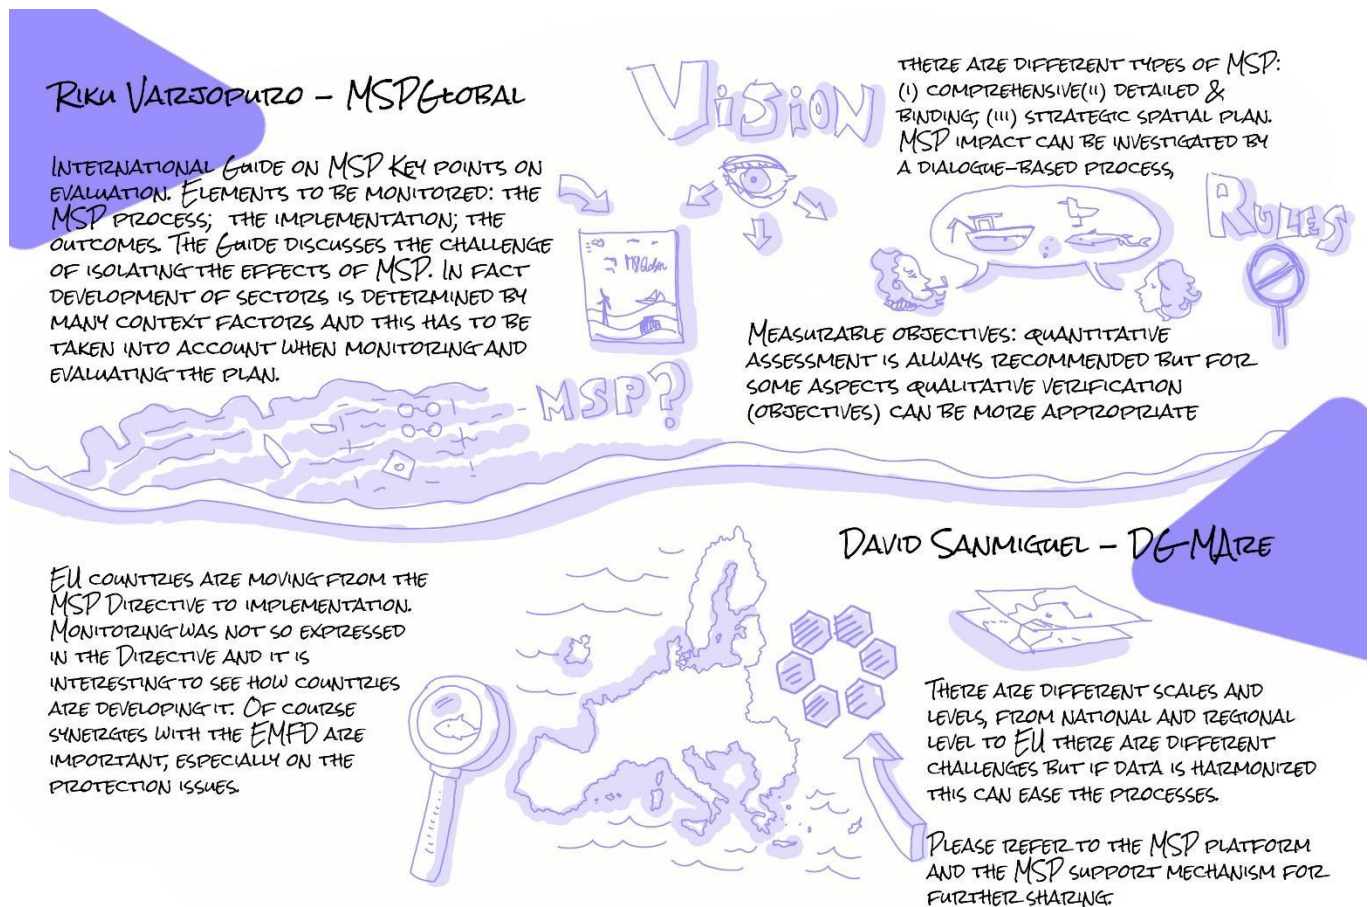 Riku Varjopuro – MSPGlobal
International Guide on MSP Key points on
evaluation. Elements to be monitored: the
MSP process; the implementation; the
outcomes. The Guide discusses the challenge
of isolating the effects of MSP. In fact
development of sectors is determined by
many context factors and this has to be
taken into account when monitoring and
evaluating the plan.
Vision
MSPGlobal
MSP?
there are different types of MSP:
(i) comprehensive(ii) detailed &
binding; (iii) strategic spatial plan.
MSP impact can be investigated by
a dialogue-based process,
Rules
Measurable objectives: quantitative
assessment is always recommended but for
some aspects qualitative verification
(objectives) can be more appropriate
David Sanmiguel – DG-MAre
EU countries are moving from the
MSP Directive to implementation.
Monitoring was not so expressed
in the Directive and it is
interesting to see how countries
are developing it. Of course
synergies with the EMFD are
important, especially on the
protection issues.
There are different scales and
levels, from national and regional
level to EU there are different
challenges but if data is harmonized
this can ease the processes.
Please refer to the MSP platform
and the MSP support mechanism for
further sharing.